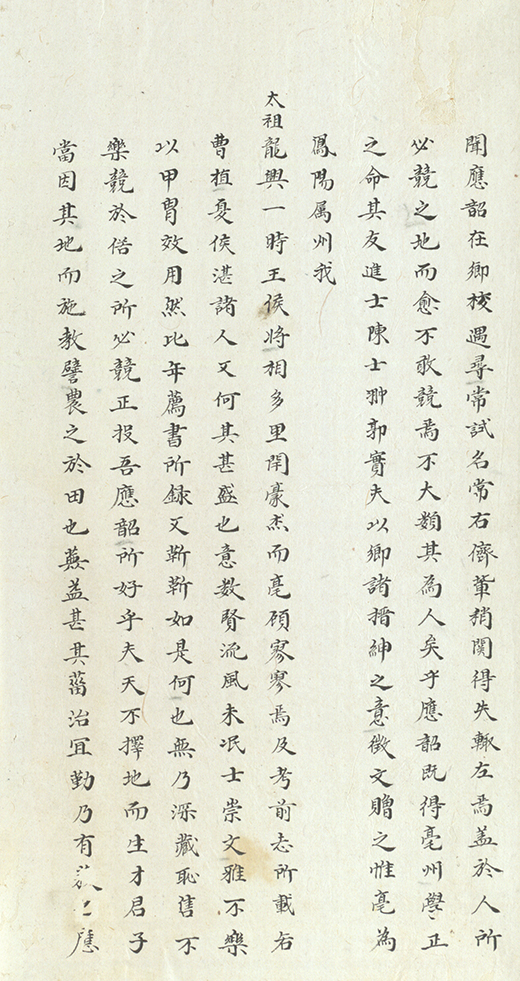 聞應韶在鄉校遇尋常試名常右儕輩稍関得失輙左焉盖於人所
必競之地而愈不敢競焉不大類其為人矣乎應韶既得亳州學正
之命其友進士陳士翀郭實夫以鄉諸搢紳之意徵文贈之惟亳為
鳳陽属州我
太祖龍興一時王侯將相多里閈豪杰而亳頋寥寥焉及考前志所載若
曹植夏侯湛諸人又何其甚盛也意数賢流風未泯士崇文雅不樂
以甲胄效用然比年薦書所録又靳靳如是何也無乃深藏恥售不
樂競於俗之所必競正投吾應韶所好乎夫天不擇地而生才君子
當因其地而施教譬農之於田也蕪益甚其菑治冝勤乃有